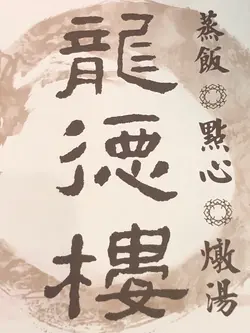 龍德樓
蒸飯 點心 燉湯